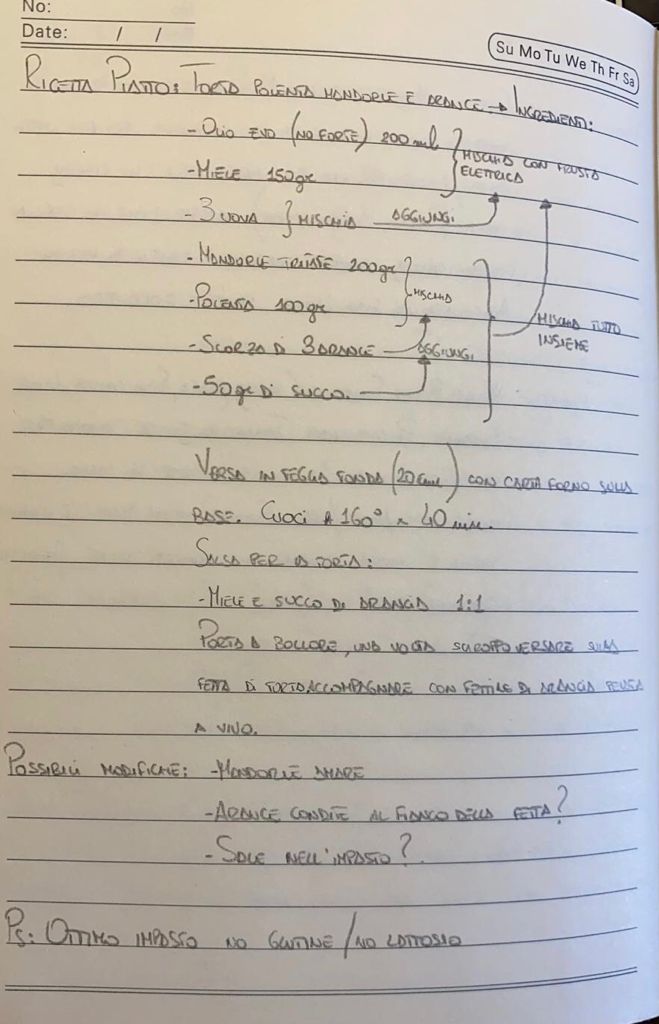 No:
Date: / /
Su Mo Tu We Th Fr Sa
RICETTA PIATTO: TORTA POLENTA MANDORLE E ARANCE → INGREDIENTI:
- OLIO EVO (NO FORTE) 200 ml
MISCHIA CON FRUSTA
ELETTRICA
- MIELE 150gr
- 3 UOVA } MISCHIA AGGIUNGI
- MANDORLE TRITATE 200gr
MISCHIA
- POLENTA 100gr
MISCHIA TUTTO
INSIEME
- SCORZA DI 3 ARANCE AGGIUNGI
- 50gr DI SUCCO.
VERSA IN TEGLIA TONDA (20cm) CON CARTA FORNO SULLA
BASE. CUOCI A 160° x 40 min.
SALSA PER LA TORTA:
- MIELE E SUCCO DI ARANCIA 1:1
PORTA A BOLLORE, UNA VOLTA SCIROPPO VERSARE SULLA
FETTA DI TORTA ACCOMPAGNARE CON FETTINE DI ARANCIA PELATA
A VIVO.
POSSIBILI MODIFICHE: - MANDORLE AMARE
- ARANCE CONDITE AL FIANCO DELLA FETTA?
- SALE NELL'IMPASTO?
PS: OTTIMO IMPASTO NO GLUTINE / NO LATTOSIO